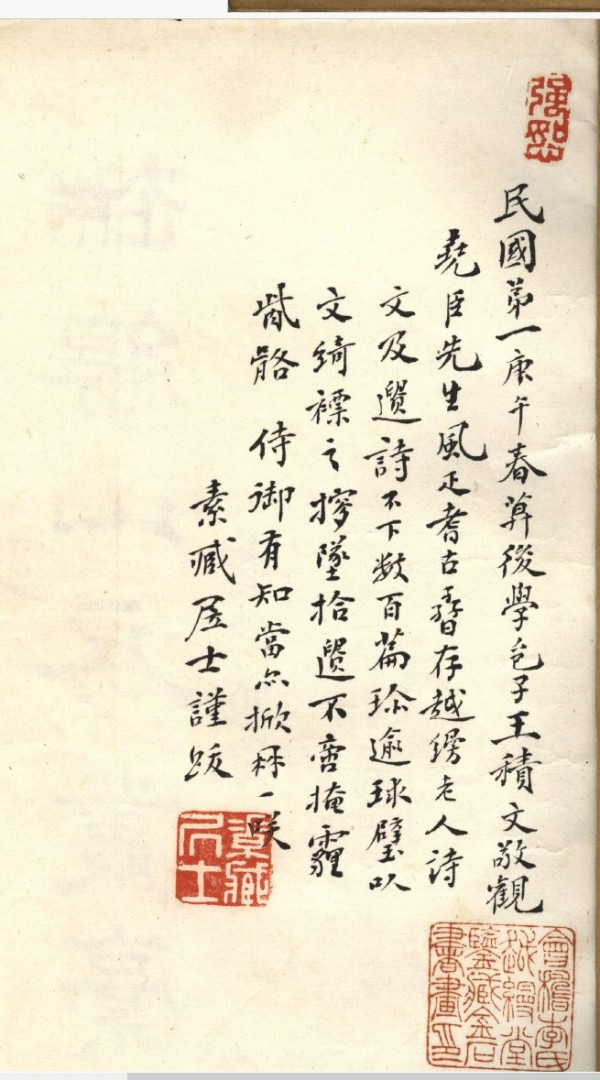 民國第一庚午春後學邑子王積文敬觀
堯臣先生風疋耆古存越縵老人詩
文及遺詩不下數百篇珎逾球璧以
文綺褾之墜拾遺不啻掩霾
胔骼 侍御有知當亦掀髯一咲
素臧居士謹跋
素臧居士
會稽李氏越縵堂鑒藏金石書畫印